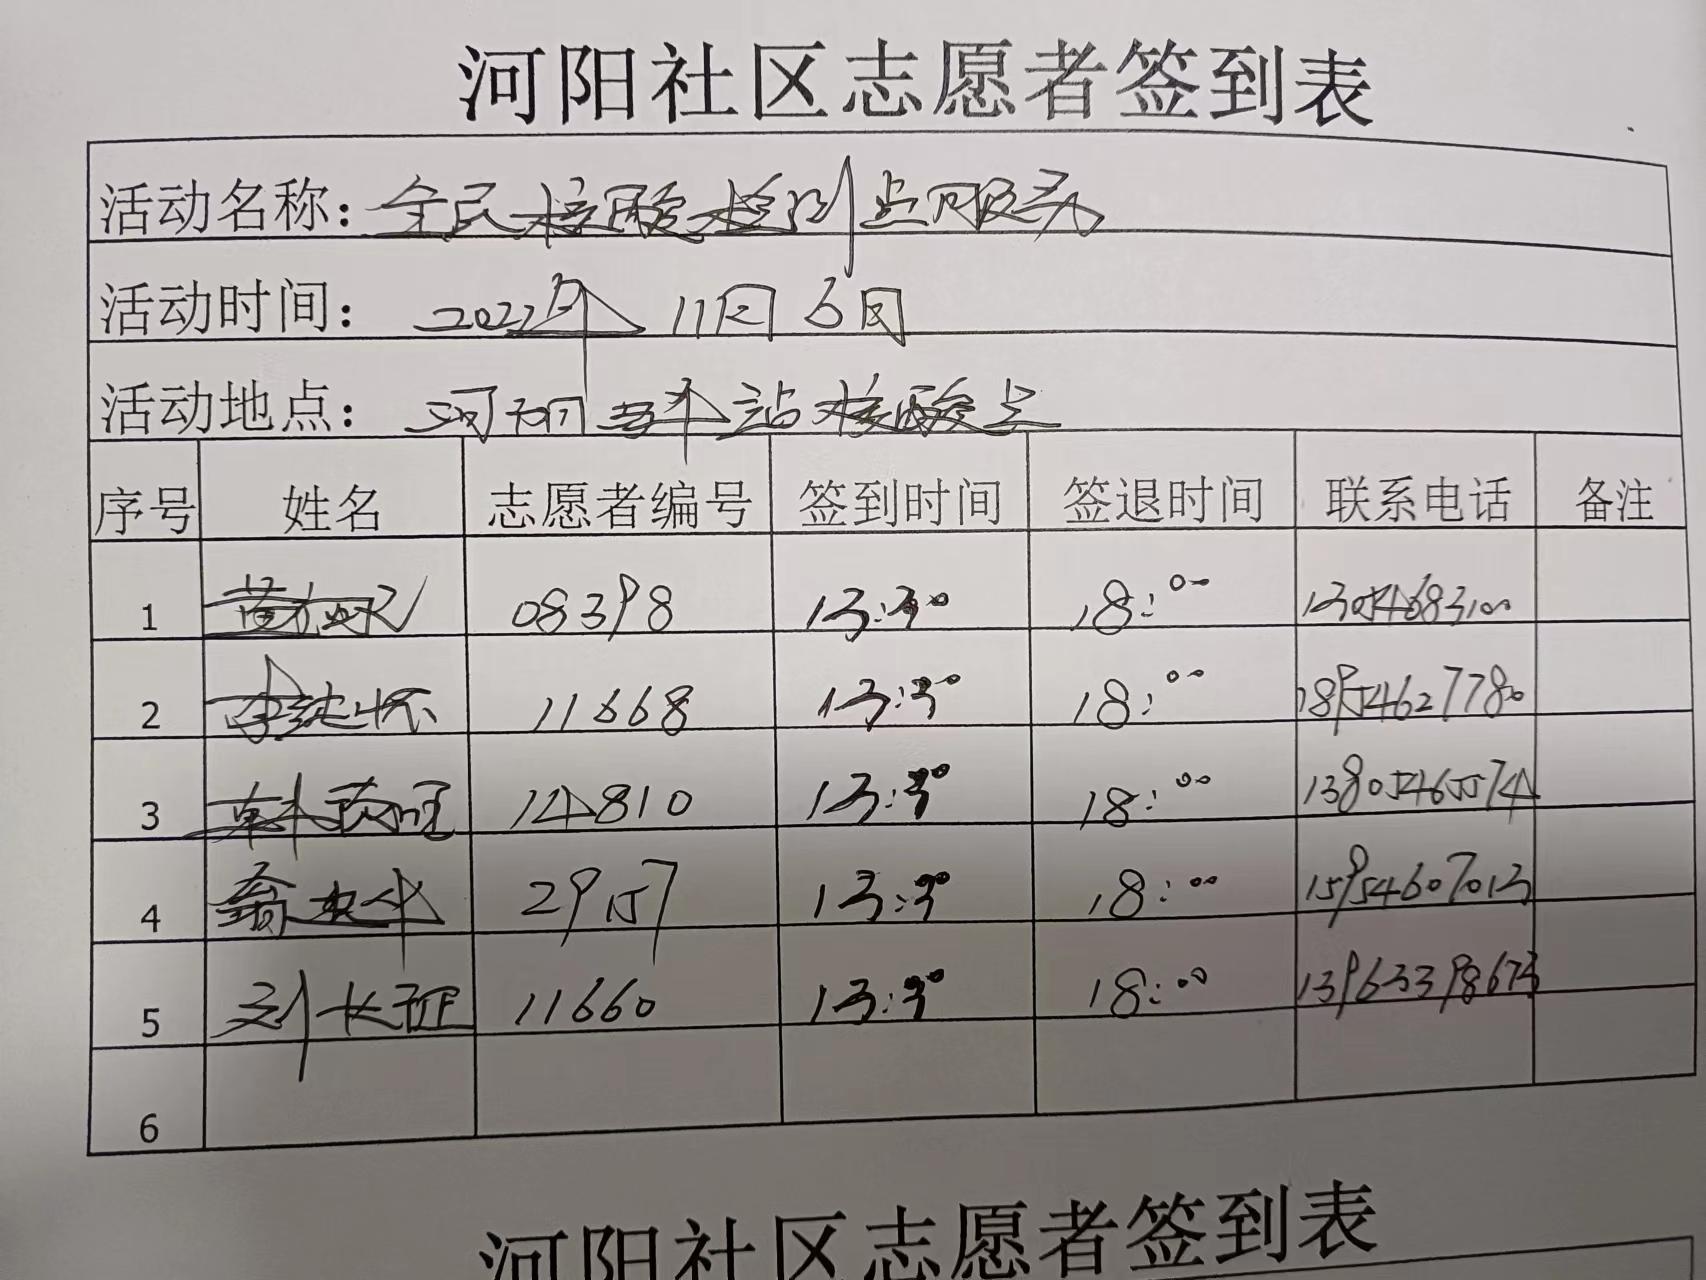 河阳社区志愿者签到表
活动名称：全民核酸检测点服务
活动时间： 2022年 11月 6日
活动地点： 河阳车站核酸点
序号 姓名 志愿者编号 签到时间 签退时间 联系电话 备注
1 08398 13:30 18:00 13054683100
2 11668 13:30 18:00 18954627780
3 14810 13:30 18:00 13805465574
4 29157 13:30 18:00 15954607013
5 刘长征 11660 13:30 18:00 13963398673
6
河阳社区志愿者签到表